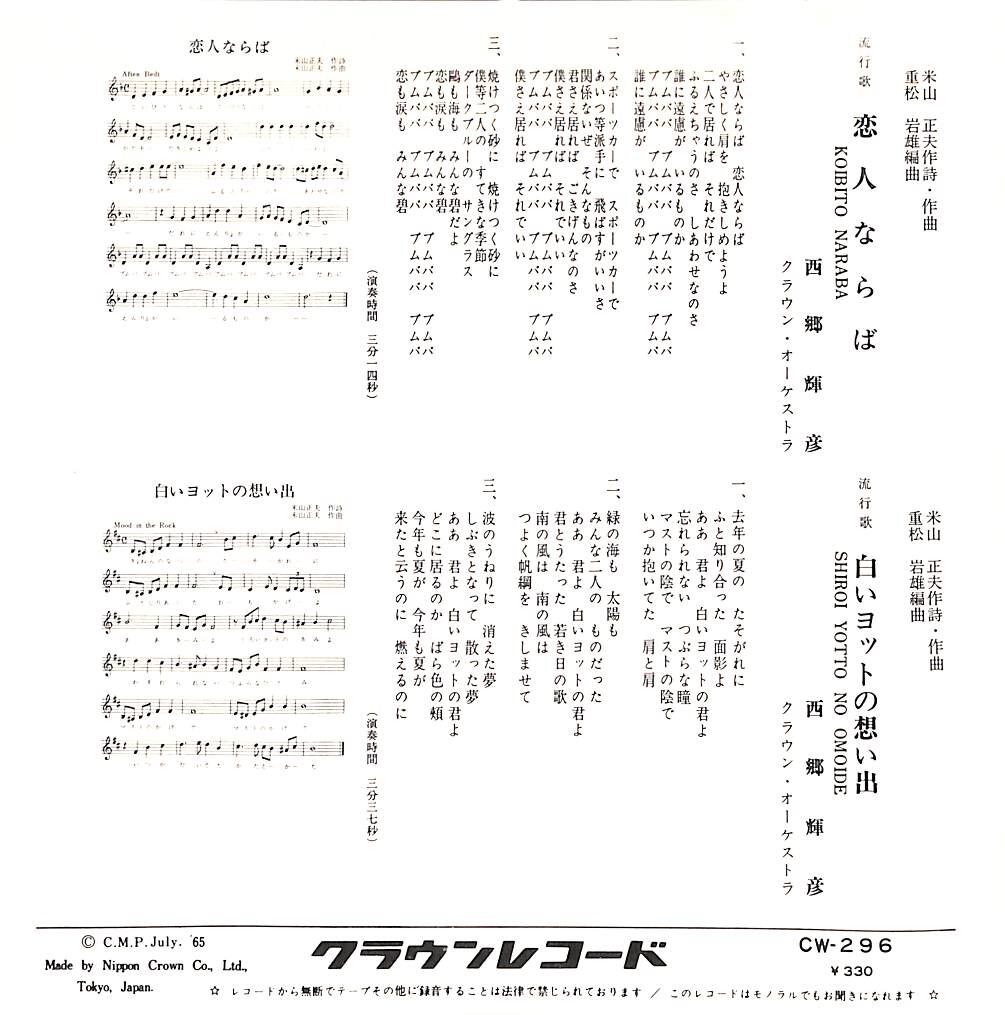 米山 正夫作詩・作曲
重松 岩雄編曲
流行歌
恋人ならば
KOIBITO NARABA
西郷輝彦
クラウン・オーケストラ
一、
恋人ならば 恋人ならば
やさしく肩を 抱きしめようよ
二人で居れば それだけで
ふるえちゃうのさ しあわせなのさ
誰に遠慮が いるものか
ブムババ ブムババ ブムババ ブムバ
ブムババ ブムババ ブムババ ブムバ
誰に遠慮が いるものか
二、
スポーツカーで スポーツカーで
あいつ等派手に 飛ばすがいいさ
関係ないぜ そんなもの
君さえ居れば ごきげんなのさ
僕さえ居れば それでいい
ブムババ ブムババ ブムババ ブムバ
ブムババ ブムババ ブムババ ブムバ
僕さえ居れば それでいい
三、
焼けつく砂に 焼けつく砂に
僕等二人の すてきな季節
ダークブルーの サングラス
鷗も海も みんな碧だよ
恋も涙も みんな碧
ブムババ ブムババ ブムババ ブムバ
ブムババ ブムババ ブムババ ブムバ
恋も涙も みんな碧
(演奏時間 三分一四秒)
恋人ならば
米山正夫 作詩
米山正夫 作曲
米山 正夫作詩・作曲
重松 岩雄編曲
流行歌
白いヨットの想い出
SHIROI YOTTO NO OMOIDE
西郷輝彦
クラウン・オーケストラ
一、
去年の夏の たそがれに
ふと知り合った 面影よ
ああ 君よ 白いヨットの君よ
忘れられない つぶらな瞳
マストの陰で マストの陰で
いつか抱いてた 肩と肩
二、
緑の海も 太陽も
みんな二人の ものだった
ああ 君よ 白いヨットの君よ
君とうたった 若き日の歌
南の風は 南の風は
つよく帆綱を きしませて
三、
波のうねりに 消えた夢
しぶきとなって 散った夢
ああ 君よ 白いヨットの君よ
どこに居るのか ばら色の頬
今年も夏が 今年も夏が
来たと云うのに 燃えるのに
(演奏時間 三分三七秒)
白いヨットの想い出
米山正夫 作詩
米山正夫 作曲
Mood in the Rock
© C.M.P. July. '65
Made by Nippon Crown Co., Ltd.,
Tokyo, Japan.
クラウンレコード
CW-296
¥330
☆ レコードから無断でテープその他に録音することは法律で禁じられております / このレコードはモノラルでもお聞きになれます ☆